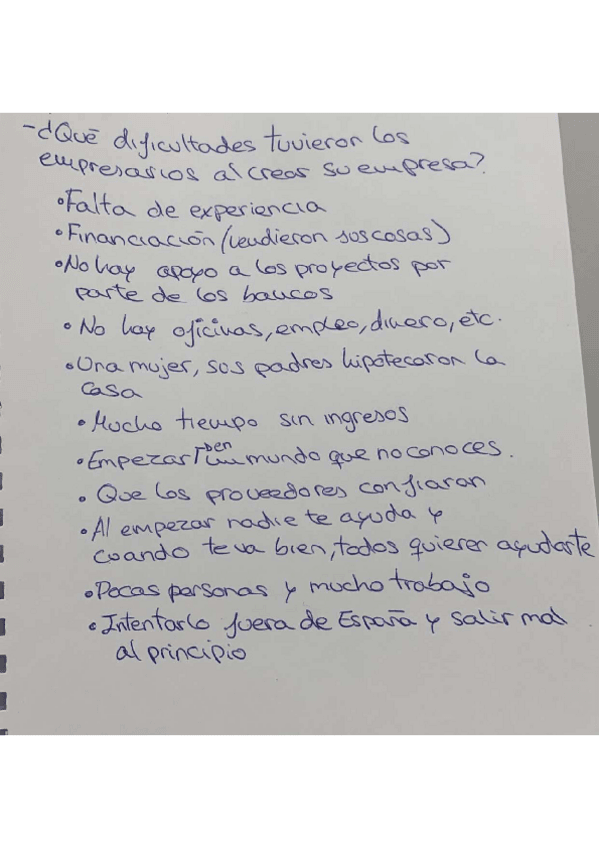 -¿Qué dificultades tuvieron los
empresarios al crear su empresa?
•Falta de experiencia
•Financiación (vendieron sus cosas)
•No hay apoyo a los proyectos por
parte de los bancos
• No hay oficinas, empleo, dinero, etc.
•Una mujer, sus padres hipotecaron la
casa
• Mucho tiempo sin ingresos
•Empezar en un mundo que no conoces.
• Que los proveedores confiaran
•Al empezar nadie te ayuda y
cuando te va bien, todos quieren ayudarte
•Pocas personas y mucho trabajo
•Intentarlo fuera de España y salir mal
al principio